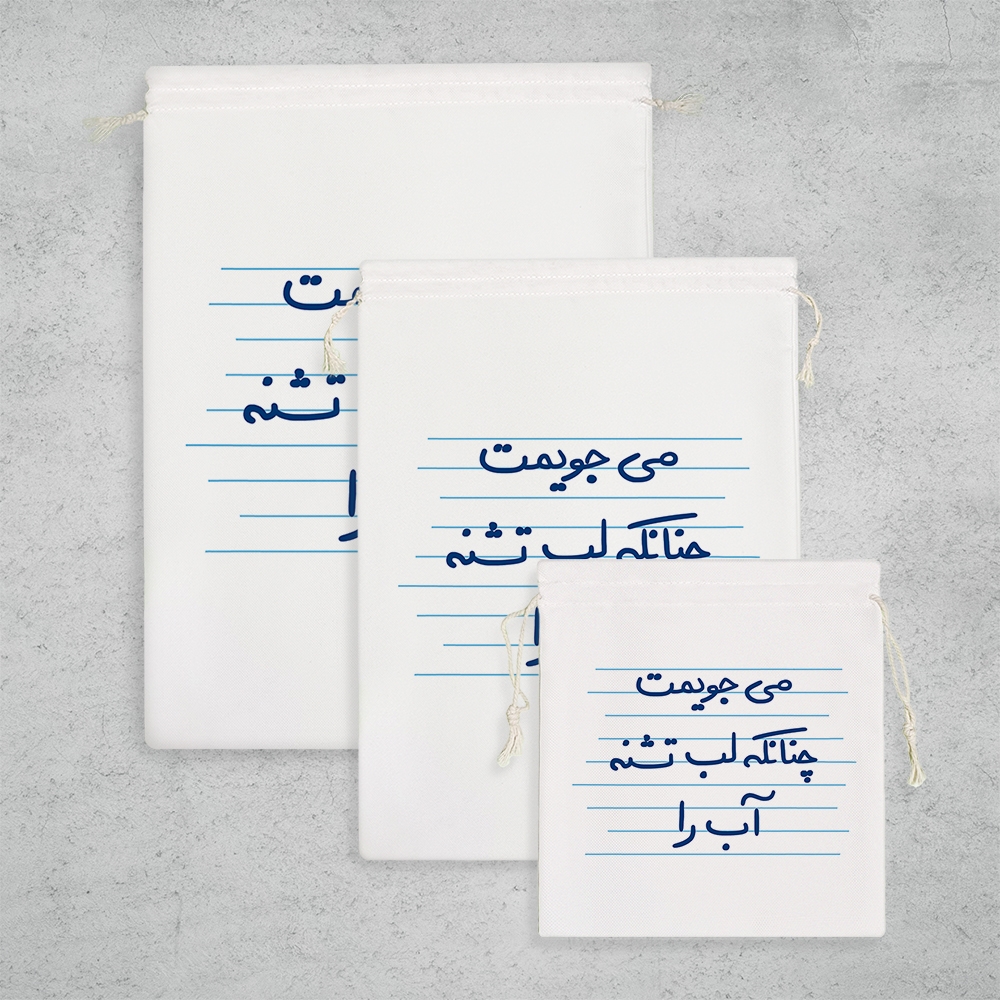 تشنه
می جویمت
چنانکه لب تشنه
می جویمت
چنانکه لب تشنه
آب را